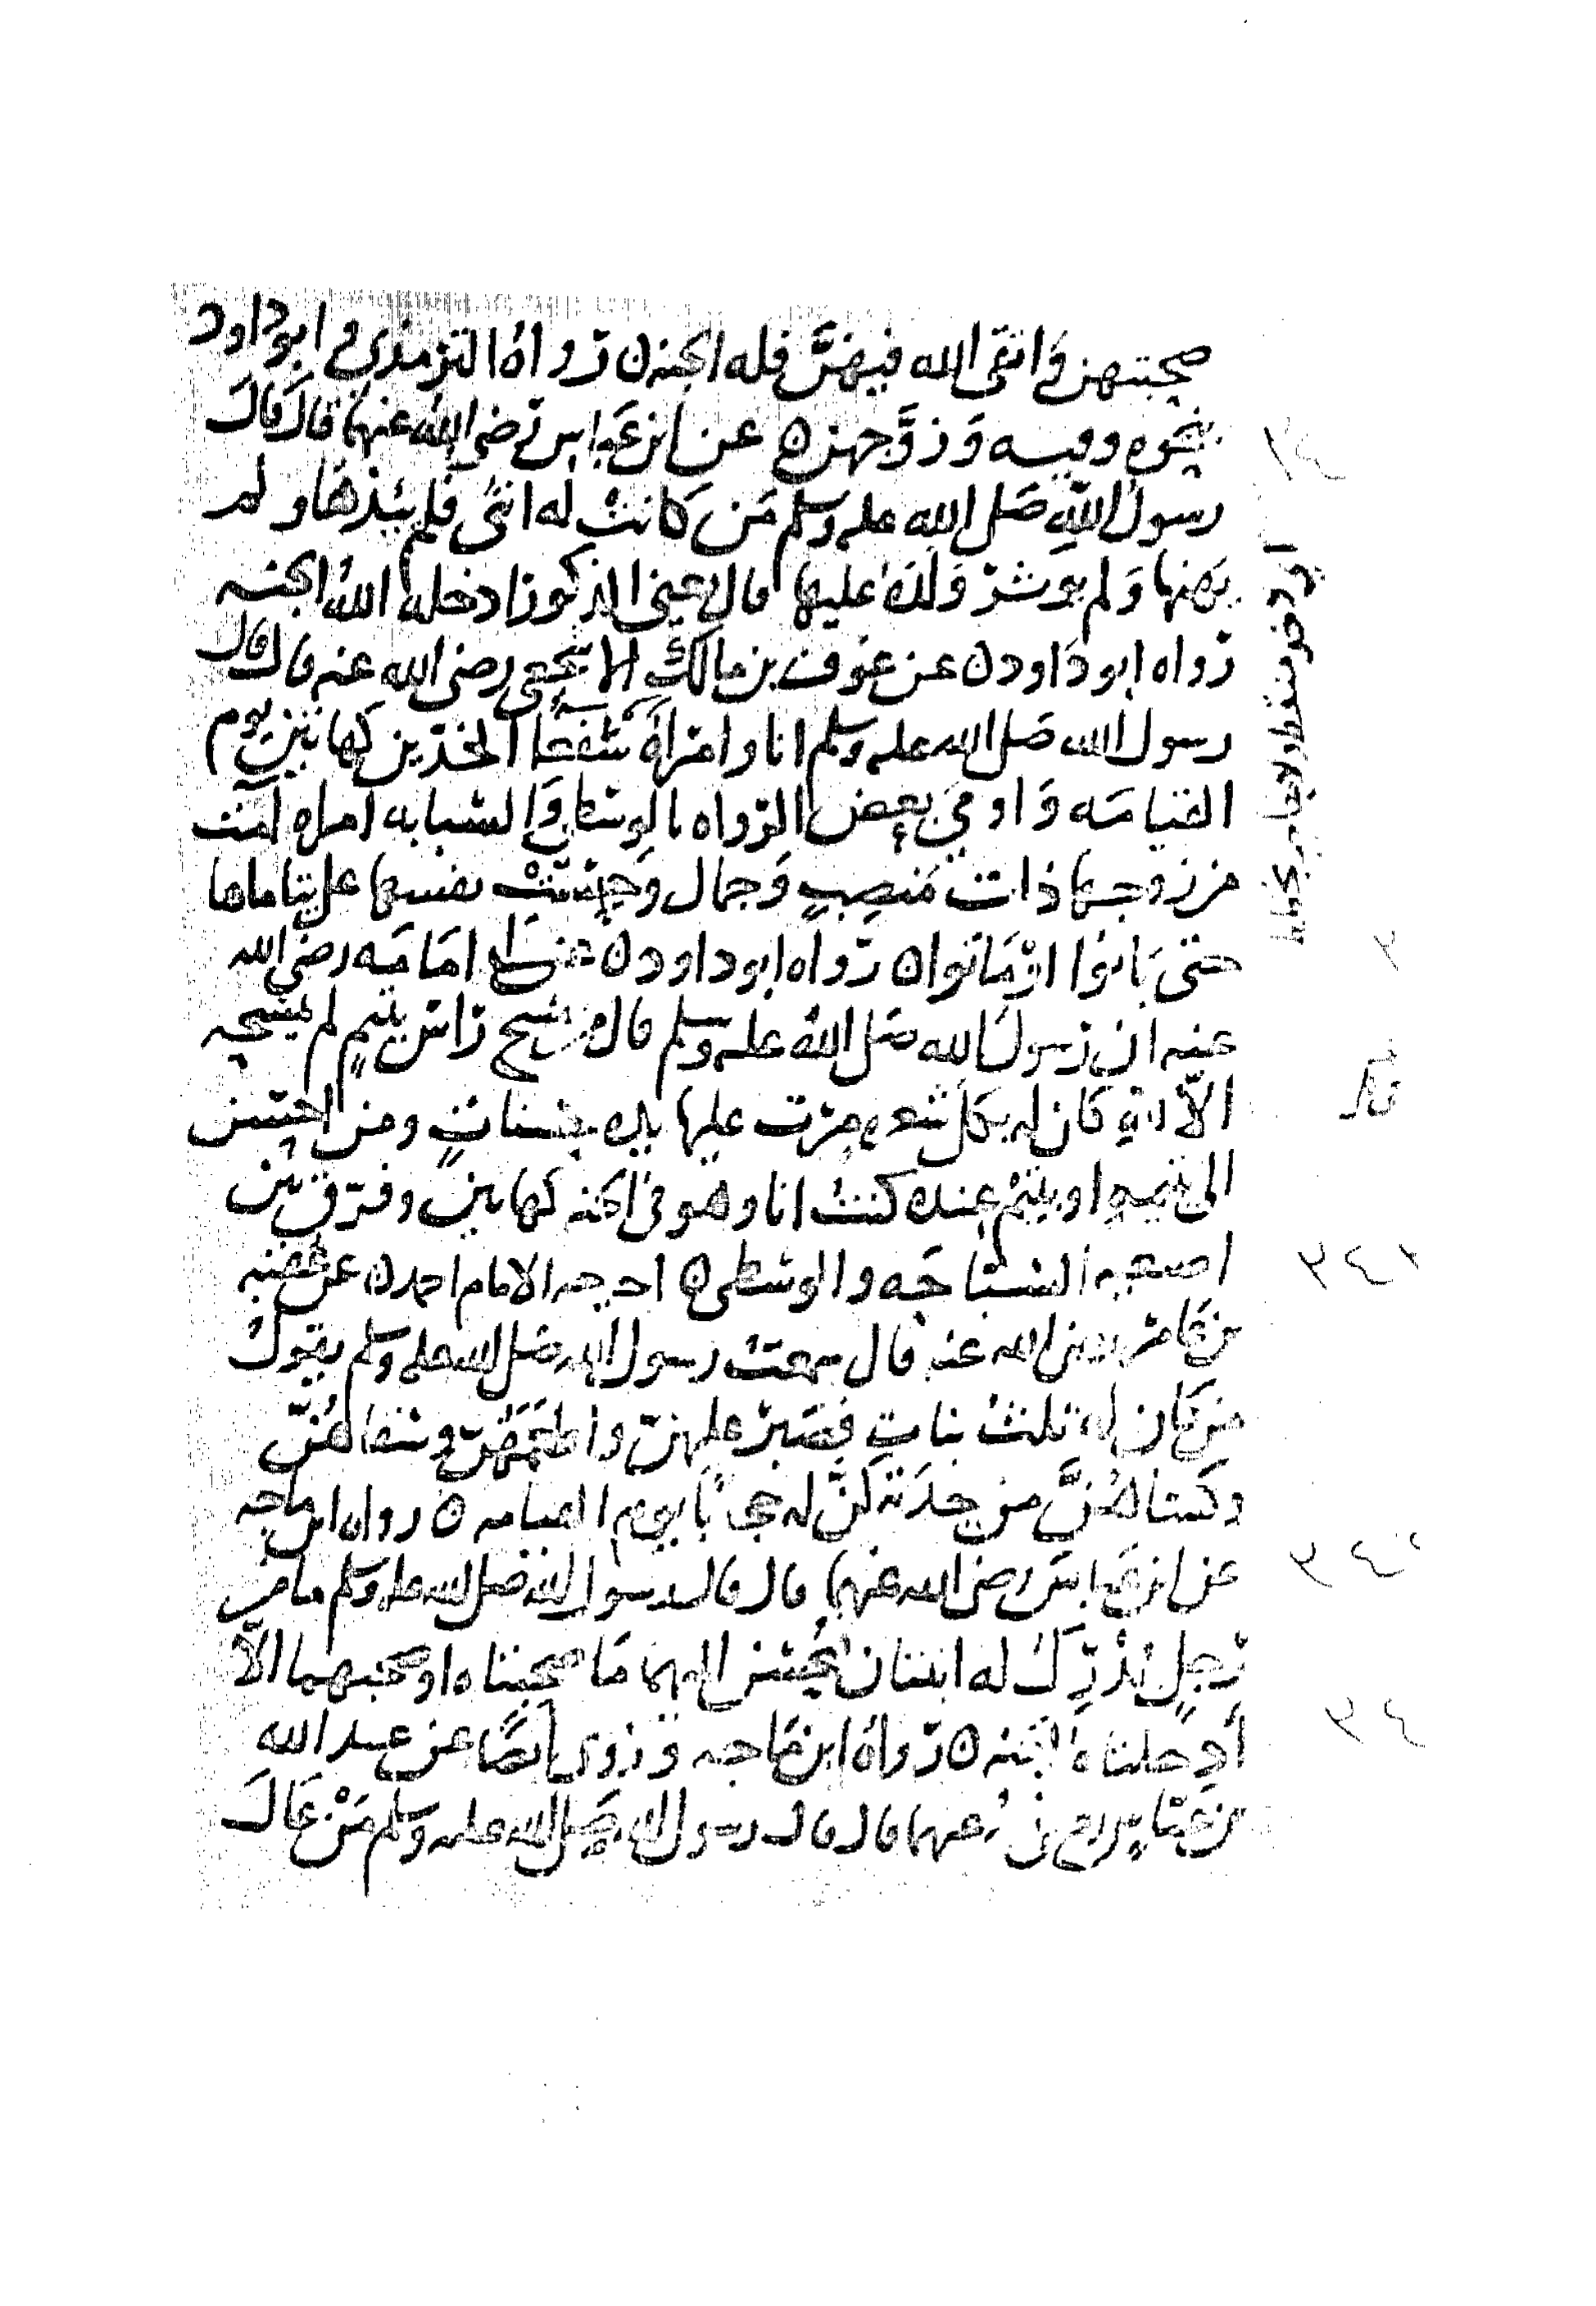 صحبتهن واتقى الله فيهن فله الجنة ن رواه الترمذي وابو داود
بنحوه وفيه وزوجهن ن عن ابن عباس رضي الله عنهما قال قال
رسول الله صلى الله عليه وسلم من كانت له انثى فلم يئدها ولم
يهنها ولم يوثر ولده عليها قال يعني الذكور ادخله الله الجنه
رواه ابو داود ن عن عوف بن مالك الاشجعي رضي الله عنه قال قال
رسول الله صلى الله عليه وسلم انا وامراة سفعا الخدين كهاتين يوم
القيامه واومى بعض الرواه بالوسطى والسبابه امراه آمت
من زوجها ذات منصب وجمال وحبست نفسها على يتاماها
حتى بانوا او ماتوا ن رواه ابو داود ن عن ابي امامه رضي الله
عنه ان رسول الله صلى الله عليه وسلم قال من مسح راس يتيم لم يمسحه
الا لله كان له بكل شعره مرت عليها يده حسنات ومن احسن
الى يتيمه او يتيم عنده كنت انا وهو في الجنه كهاتين وفرق بين
اصبعيه السباحه والوسطى ن اخرجه الامام احمد ن عن عقبه
بن عامر رضي الله عنه قال سمعت رسول الله صلى الله عليه وسلم يقول
من كان له ثلث بنات فصبر عليهن واطعمهن وسقاهن
وكساهن من جدته كن له حجابا يوم القيامه ن رواه ابن ماجه
عن ابن عباس رضي الله عنهما قال قال رسول الله صلى الله عليه وسلم ما من
رجل تدرك له ابنتان فيحسن اليهما ما صحبتاه او صحبهما الا
أدخلتاه الجنه ن رواه ابن ماجه وروى ايضا عن عبد الله
بن عباس رضي الله عنهما قال قال رسول الله صلى الله عليه وسلم من عال